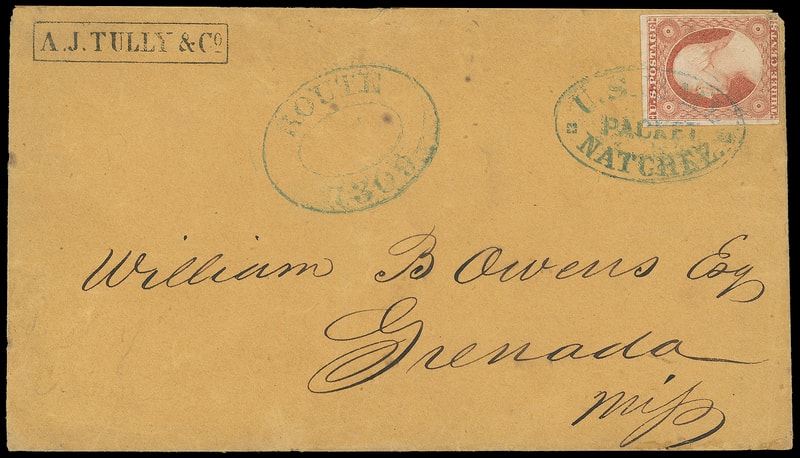 A.J. TULLY & Co
ROUTE
7309
U.S. POSTAGE
THREE CENTS
U.S.
PACKET
NATCHEZ.
William B Owens Esq
Grenada
Miss